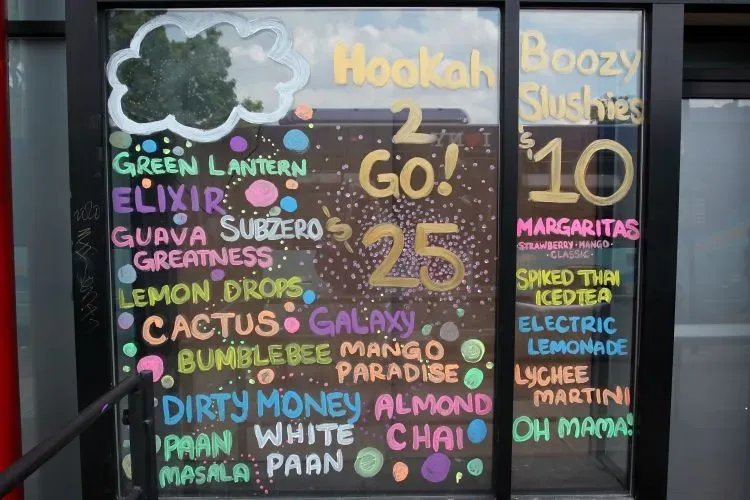 Hookah
2
GO!
$25
GREEN LANTERN
ELIXIR
SUBZERO
GUAVA
GREATNESS
LEMON DROPS
CACTUS
GALAXY
BUMBLEBEE
MANGO
PARADISE
DIRTY MONEY
ALMOND
CHAI
PAAN
MASALA
WHITE
PAAN
Boozy
Slushies
$10
MARGARITAS
STRAWBERRY · MANGO
· CLASSIC ·
SPIKED THAI
ICED TEA
ELECTRIC
LEMONADE
LYCHEE
MARTINI
OH MAMA!